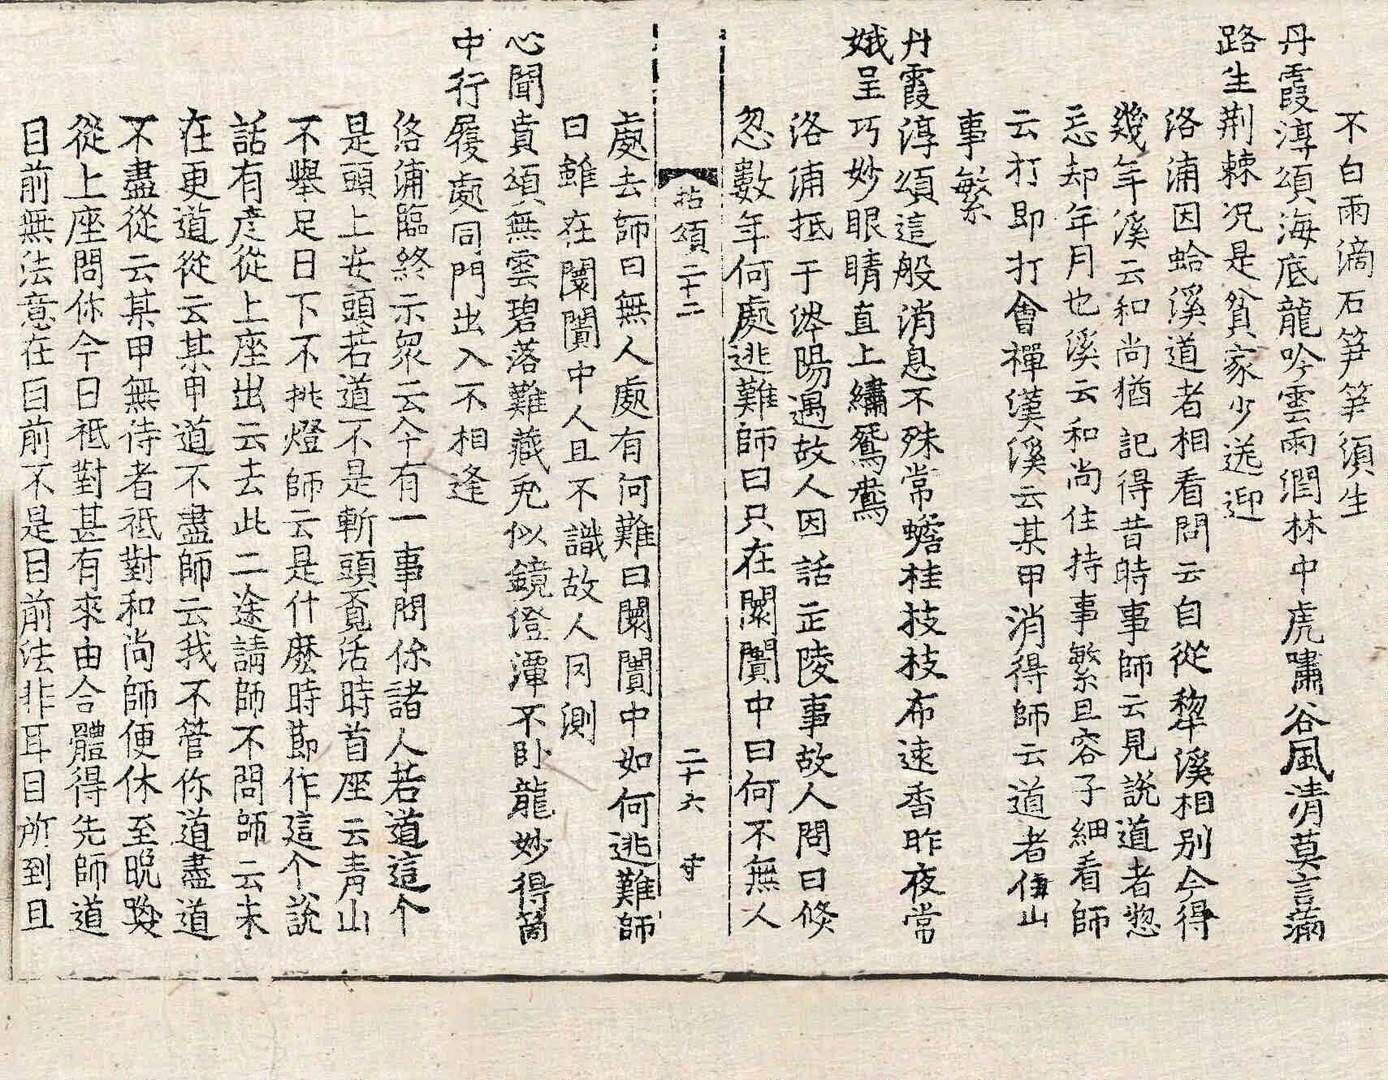 不白雨滴石笋笋須生
丹霞淳頌海底龍吟雲雨潤林中虎嘯谷風清莫言滿
路生荆棘况是貧家少送迎
洛浦因蛤溪道者相看問云自從犂溪相别今得
幾年溪云和尚猶記得昔時事師云見說道者忽
忘却年月也溪云和尚住持事繁且容子細看師
云打即打會禪漢溪云某甲消得師云道者住山
事繁
丹霞淳頌這般消息不殊常蟾桂技枝布速香昨夜常
娥呈巧妙眼睛直上繡鴛鴦
洛浦抵于涔陽遇故人因話正陵事故人問曰倏
忽數年何處逃難師曰只在闤闠中曰何不無人
拈頌二十二 二十六 寸
處去師曰無人處有何難曰闤闠中如何逃難師
曰雖在闤闠中人且不識故人罔測
心聞賁頌無雲碧落難藏兎似鏡澄潭不卧龍妙得箇
中行履處同門出入不相逢
洛浦臨終示衆云今有一事問你諸人若道這个
是頭上安頭若道不是斬頭覔活時首座云青山
不擧足日下不挑燈師云是什麽時節作這个說
話有彦從上座出云去此二途請師不問師云未
在更道從云某甲道不盡師云我不管你道盡道
不盡從云某甲無侍者祗對和尚師便休至晩喚
從上座問你今日祗對甚有來由合體得先師道
目前無法意在目前不是目前法非耳目所到且